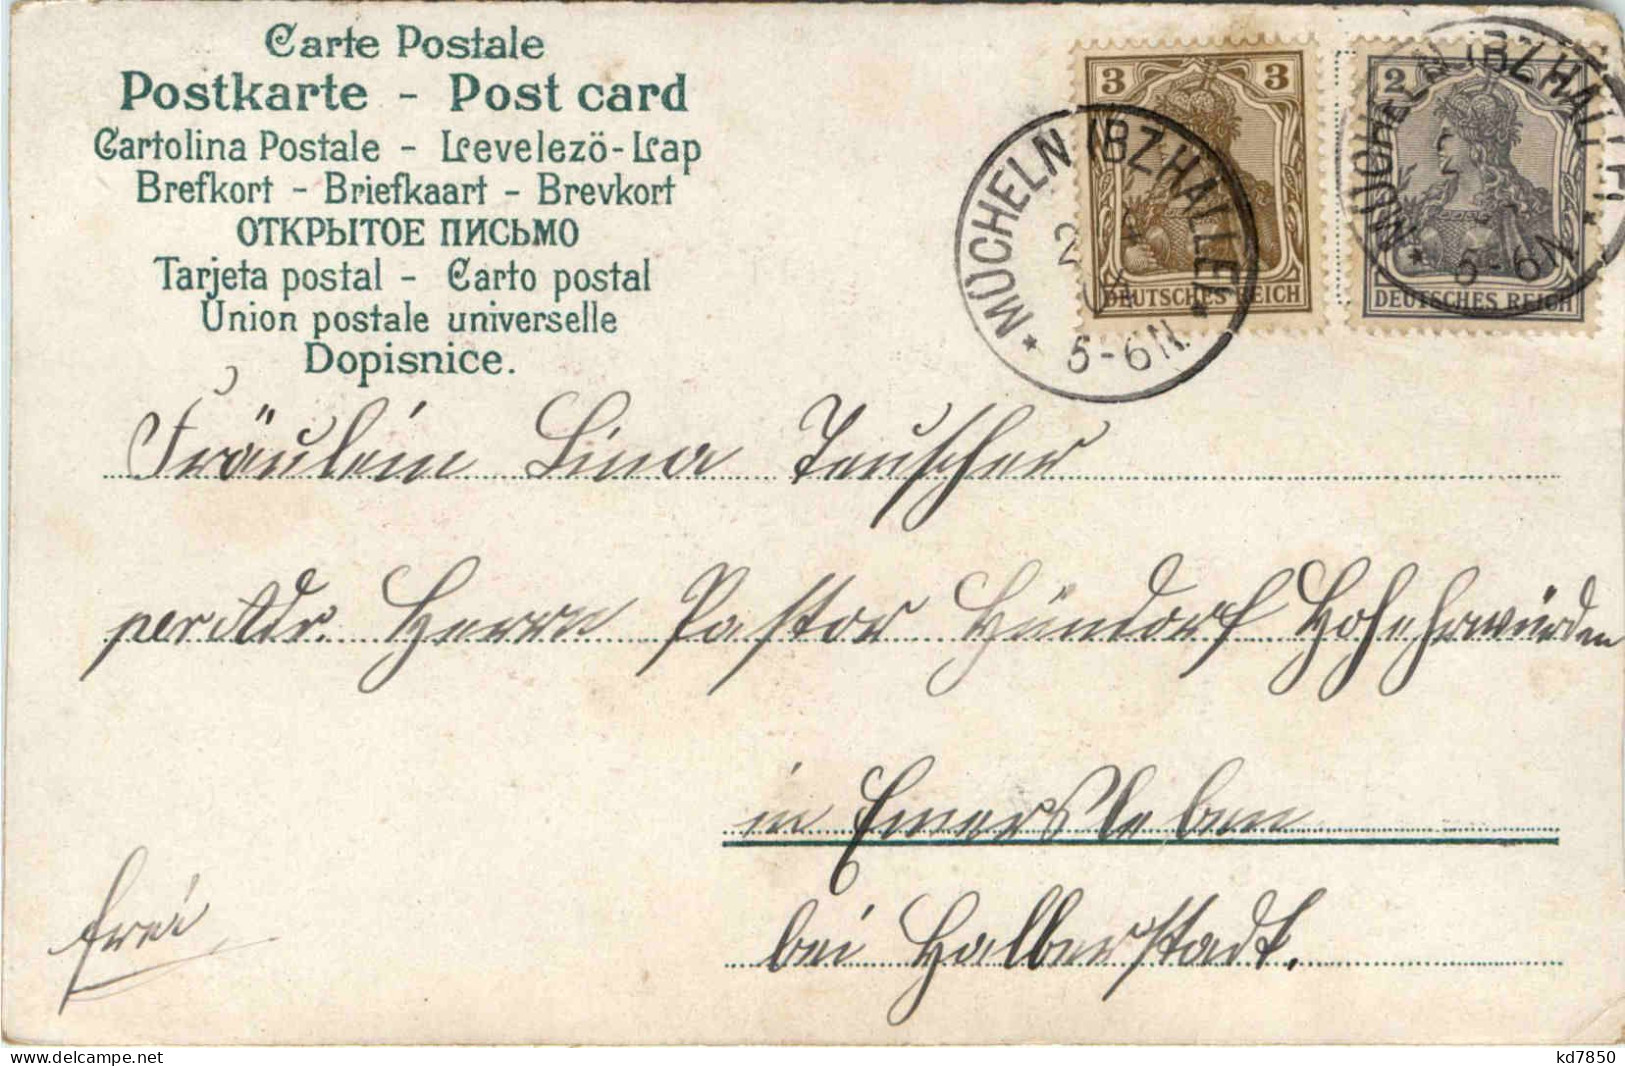 Carte Postale
Postkarte - Post card
Cartolina Postale - Levelezö-Lap
Brefkort - Briefkaart - Brevkort
ОТКРЫТОЕ ПИСЬМО
Tarjeta postal - Carto postal
Union postale universelle
Dopisnice.
3 3
DEUTSCHES REICH
2
DEUTSCHES REICH
* MÜCHELN (BZ HALLE) *
5-6N.
* MÜCHELN (BZ HALLE) *
5-6N
Fräulein Lina Teuscher
per Adr. Herrn Pastor Hündorf Hochehrwürden
in Emersleben
bei Halberstadt.
frei
www.delcampe.net
kd7850